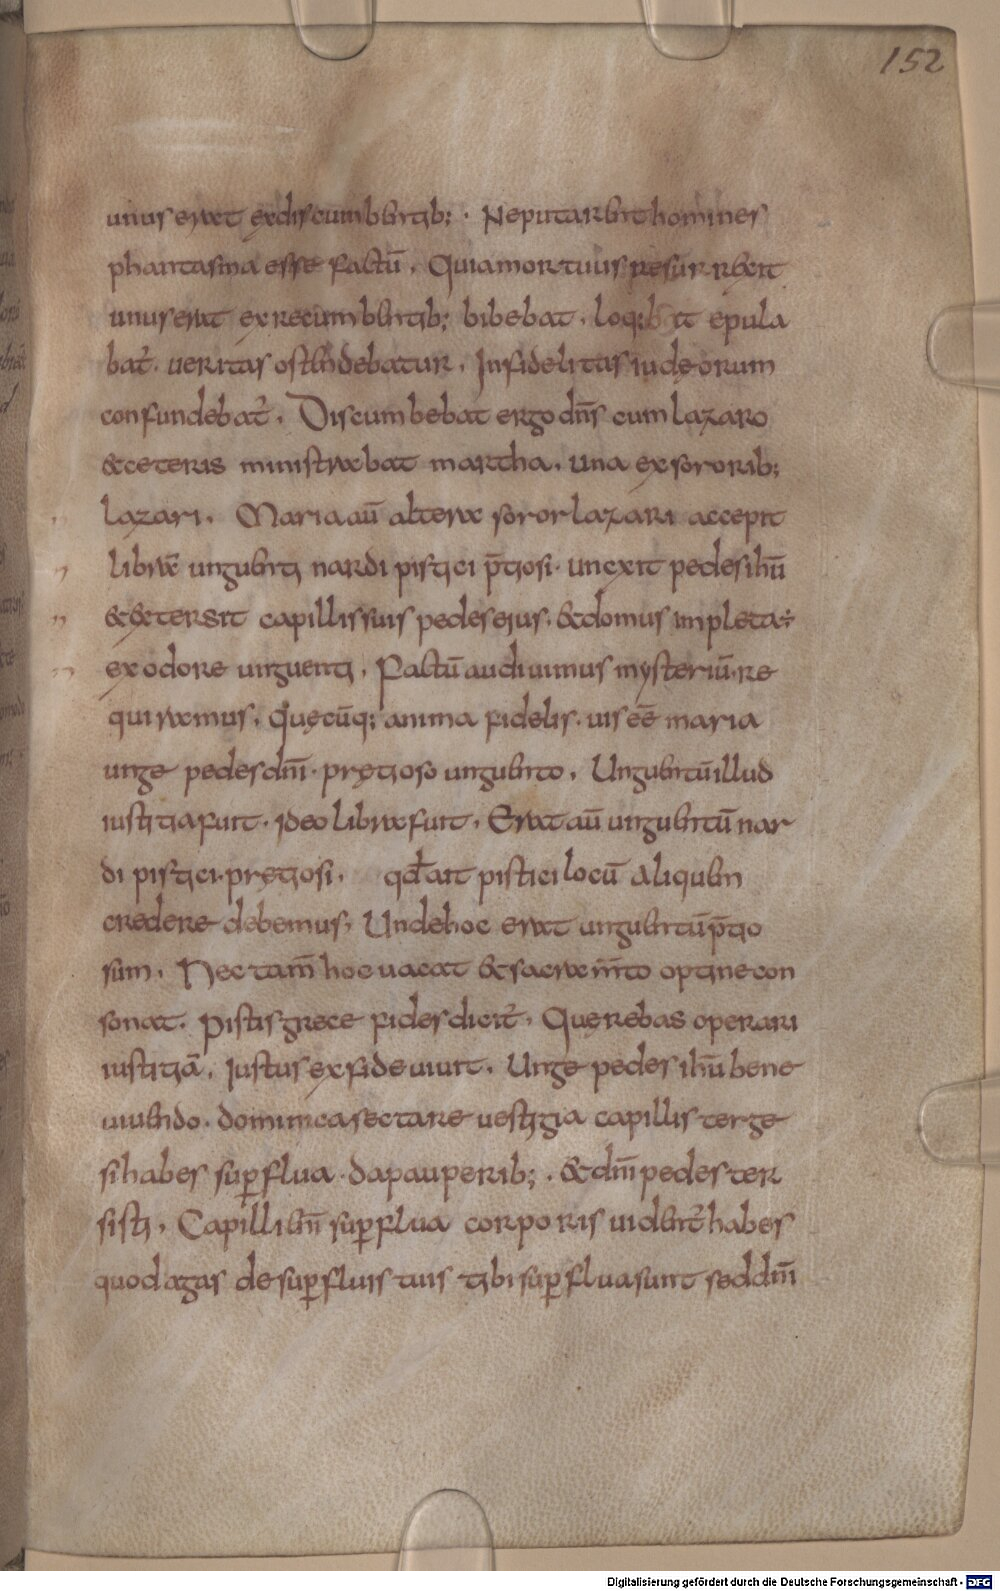 152
unus erat ex discumbentib; · Ne putarent homines
phantasma esse factū. Quia mortuus resurrexit
unus erat ex recumbentib; bibebat, loq;bat epula
bat̄. ueritas ostendebatur, Infidelitas iudęorum
confundebat̄. Discumbebat ergo dn̄s cum lazaro
& ceteris ministrabat martha, una ex sororib;
lazari. Maria aū altera soror lazari accepit
librā unguenti nardi pistici p̄tiosi. unexit pedes ihū
& extersit capillis suis pedes ejus, & domus impleta ÷
ex odore unguenti. Factū audiuimus mysteriū. re
quiramus. Quęcūq; anima fidelis. uis eē maria
unge pedes dn̄i. prętioso unguento. Unguentū illud
iustitia fuit. ideo libra fuit. Erat aū unguentū nar
di pistici. prętiosi. qd̄ ait pistici locū aliquem
credere debemus, Unde hoc erat unguentū p̄tio
sum. Nec tam̄ hoc uacat & sacram̄to optine con
sonat. Pistis grece fides dicit̄. Querebas operari
iustitiā. Iustus ex fide uiuit. Unge pedes ihū bene
uiuendo. dominica sectare uestigia capillis terge
si habes sup̱flua. da pauperib;. & dn̄i pedes ter
sisti. Capilli en̄ sup̱flua corporis uident̄ habes
quod agas de sup̱fluis tuis tibi sup̱flua sunt sed dn̄i
Digitalisierung gefördert durch die Deutsche Forschungsgemeinschaft - DFG